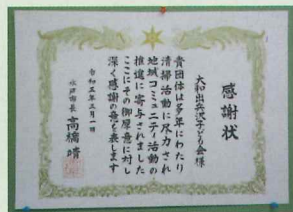 感謝状
大和出兵沢子ども会様
貴団体は多年にわたり
清掃活動に尽力され
地域コミュニティ活動の
推進に寄与されました
ここにその御厚意に対し
深く感謝の意を表します
令和五年三月一日
水戸市長 高橋 靖